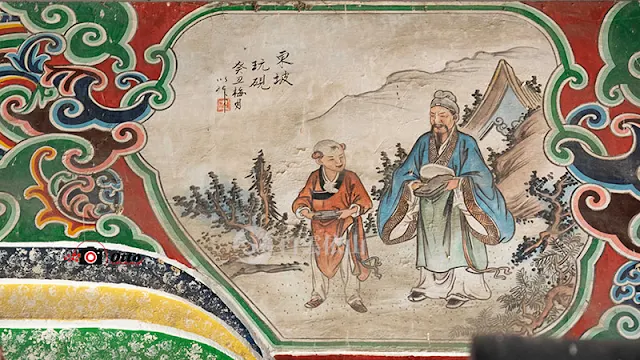 東坡
玩硯
癸丑梅月
Otto